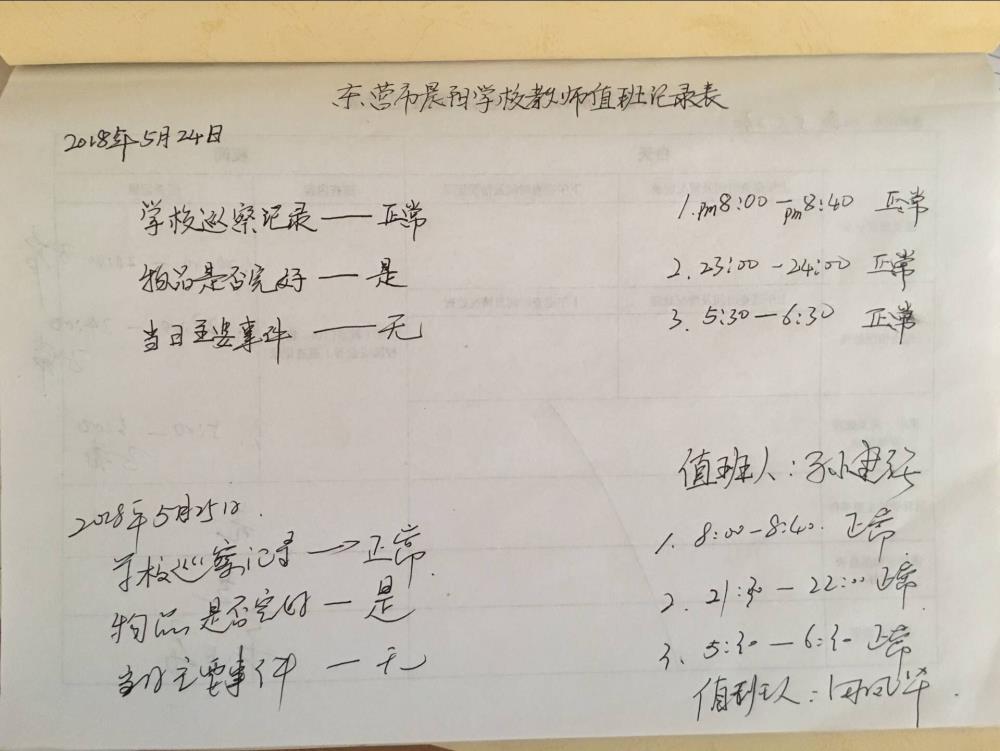 东营市晨阳学校教师值班记录表
2018年5月24日
学校巡察记录——正常
1.pm8:00-pm8:40 正常
物品是否完好——是
2.23:00-24:00 正常
当日主要事件——无
3.5:30-6:30 正常
值班人:孙建
2018年5月25日.
学校巡察记录→正常.
1.8:00-8:40.正常
物品是否完好—是
2.21:30-22:00正常
当日主要事件—无
3.5:30-6:30正常
值班人: